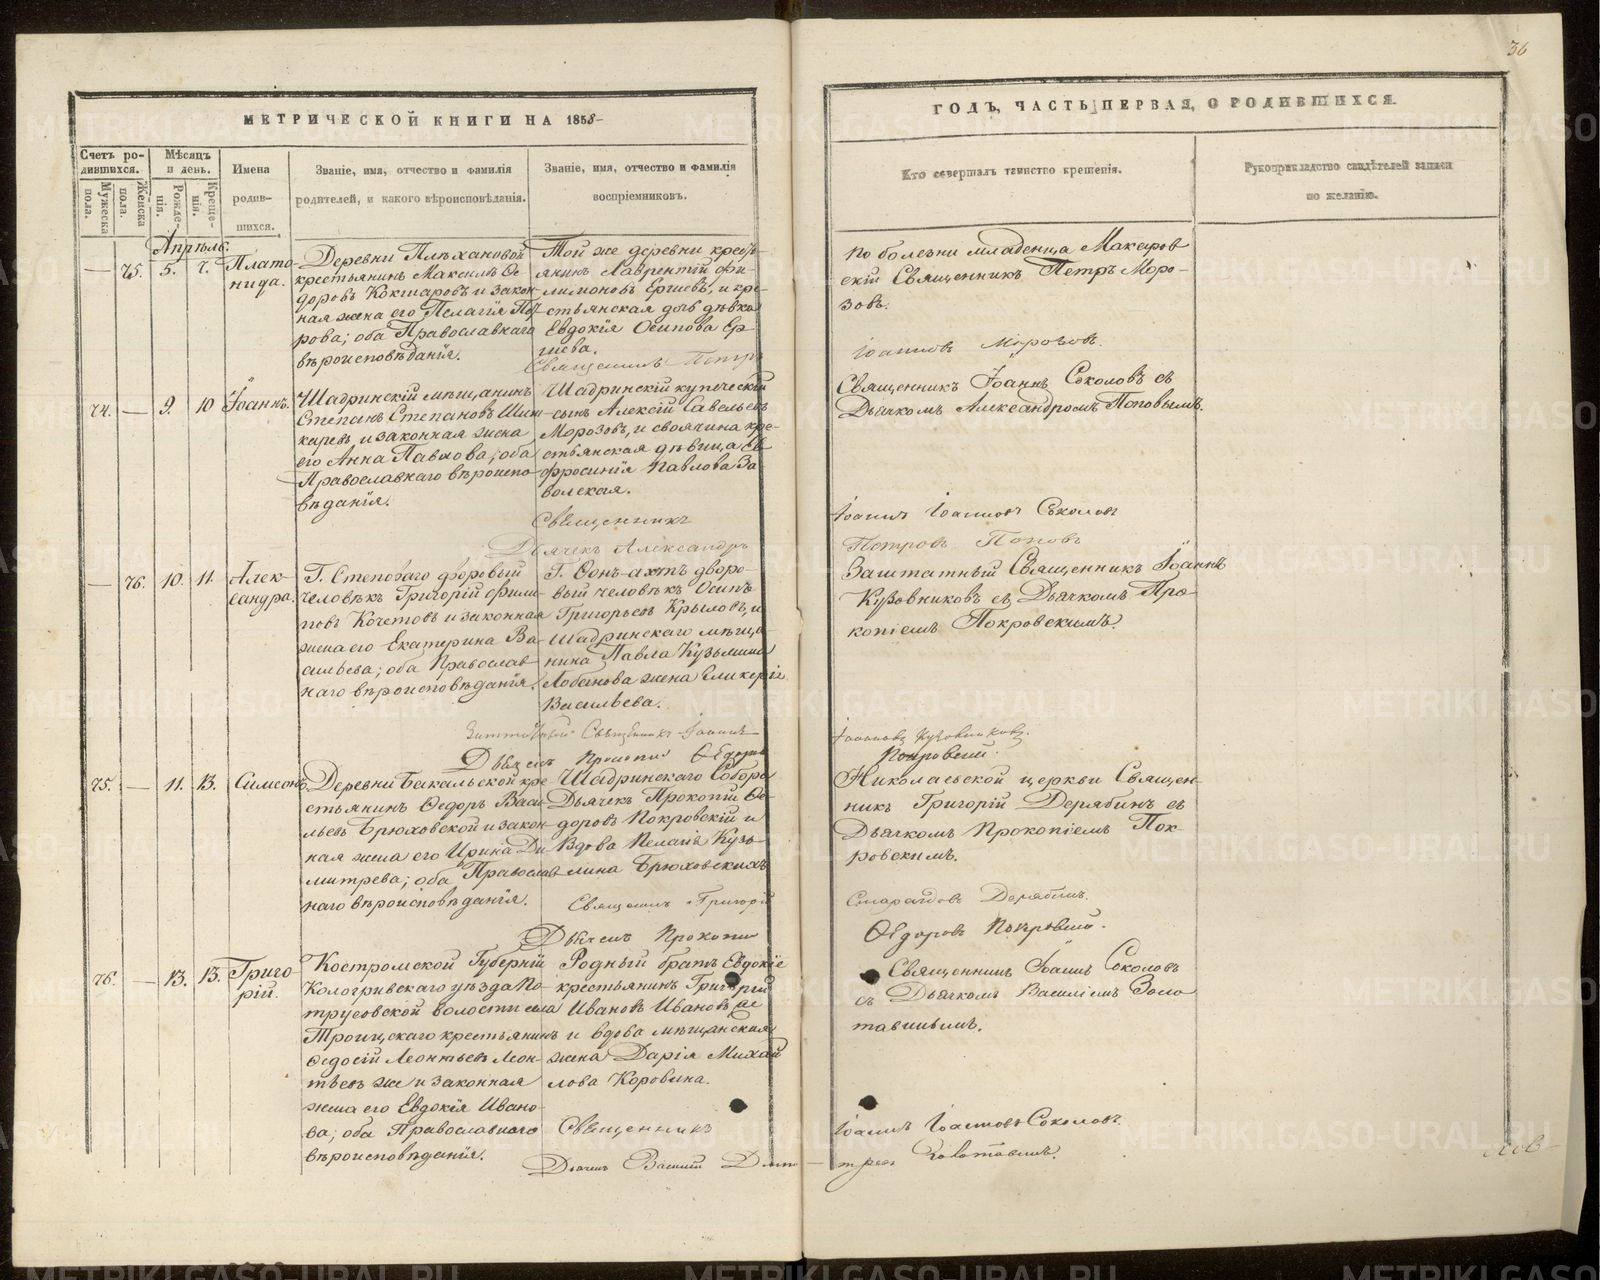 36
МЕТРИЧЕСКОЙ КНИГИ НА 1858
ГОДЪ, ЧАСТЬ ПЕРВАЯ, О РОДИВШИХСЯ.
Счетъ ро-
дившихся.
Мужеска
пола.
Женска
пола.
Мѣсяцъ
и день.
Рожде-
нія.
Креще-
нія.
Имена
родив-
шихся.
Званіе, имя, отчество и фамилія
родителей, и какого вѣроисповѣданія.
Званіе, имя, отчество и фамилія
воспріемниковъ.
Кто совершалъ таинство крещенія.
Рукоприкладство свидѣтелей записи
по желанію.
Апрѣль.
75. 5. 7.
Плато-
нида.
Деревни Плѣхановой
крестьянинъ Максимъ Ѳе-
доровъ Кокшаровъ и закон-
ная жена его Пелагія Пет-
рова; оба Православнаго
вѣроисповѣданія.
Той же деревни кресть-
янинъ Лаврентій Фи-
лимоновъ Ергиевъ, и кре-
стьянская дочь дѣвка
Евдокія Осипова Ер-
гиева.
Священникъ Петръ
По болезни младенца Макаров
скій Священникъ Петръ Моро-
зовъ.
Іоанновъ Морозовъ
74. 9. 10
Іоаннъ.
Шадринскій мѣщанинъ
Степанъ Степановъ Шин-
каревъ и законная жена
его Анна Павлова; оба
Православнаго вѣроиспо-
вѣданія.
Шадринскій купеческій
сынъ Алексій Савельевъ
Морозовъ, и своячина кре-
стьянская дѣвица Ев-
фросинія Павлова За-
волская.
Священникъ
Дьячекъ Александръ
Священникъ Іоаннъ Соколовъ съ
Дьячкомъ Александромъ Поповымъ.
Іоаннъ Іоанновъ Соколовъ
Петровъ Поповъ
76. 10. 11.
Алек-
сандра.
Г. Степоваго дворовый
человѣкъ Григорій Фили-
повъ Кочетовъ и законная
жена его Екатерина Ва-
сильева; оба Православ-
наго вѣроисповѣданія.
Г. Фонъ-ахтъ дворо-
вый человѣкъ Осипъ
Григорьевъ Крыловъ, и
Шадринскаго мѣща-
нина Павла Кузьмина
Лобанова жена Гликерія
Васильева.
Заштатный Священникъ Іоаннъ
Дьячекъ Прокопій Ѳедоръ
Заштатный Священникъ Іоаннъ
Кузовниковъ съ Дьячкомъ Про-
копіемъ Покровскимъ.
Іоанновъ Кузовниковъ.
Покровский.
75. 11. 13.
Симеонъ.
Деревни Бакальской кре-
стьянинъ Ѳедоръ Васи-
льевъ Брюховской и закон-
ная жена его Ирина Ди-
митрева; оба Православ-
наго вѣроисповѣданія.
Шадринскаго Собора
Дьячекъ Прокопій Ѳе-
доровъ Покровскій и
Вдова Пелагія Кузь-
мина Брюховскихъ
Священникъ Григорій
Дьячекъ Прокопий
Николаевской церкви Священ-
никъ Григорій Дерябинъ съ
Дьячкомъ Прокопіемъ Пок-
ровскимъ.
Смарагдовъ Дерябинъ.
Ѳедоровъ Покровский.
76. 13. 13.
Григо-
рій.
Костромской Губерніи
Кологривскаго уѣзда По-
трусовской волости села
Троицкаго крестьянинъ
Ѳедосій Леонтьевъ Леон-
тьевъ же и законная
жена его Евдокія Ивано-
ва; оба Православнаго
вѣроисповѣданія.
Родный братъ Евдокіе
крестьянинъ Григорій
Ивановъ Ивановъ же
и вдова мѣщанская
жена Дарія Михай-
лова Коровина.
Священникъ
Дьячекъ Василий Дими-
Священникъ Іоаннъ Соколовъ
съ Дьячкомъ Василіемъ Золо
тавинымъ.
Іоаннъ Іоанновъ Соколовъ.
тревъ Золотавинъ.